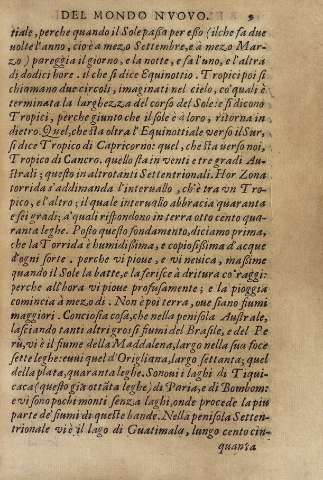 DEL MONDO NVOVO. 9
tiale, perche quando il Sole passa per esso (ilche fa due
volte l'anno, cioè a mezo Settembre, e à mezo Mar-
zo) pareggia il giorno, e la notte, e fa l'uno, e l'altra
di dodici hore. il che si dice Equinottio. Tropici poi si
chiamano due circoli, imaginati nel cielo, co' quali è
terminata la larghezza del corso del Sole: e si dicono
Tropici, perche giunto che il sole è à loro, ritorna in
dietro. Quel, che stà oltra l'Equinottiale verso il Sur,
si dice Tropico di Capricorno: quel, che stà verso noi,
Tropico di Cancro. quello sta in venti e tre gradi Au-
strali; questo in altrotanti Settentrionali. Hor Zona
torrida s'addimanda l'interuallo, ch'è tra vn Tro-
pico, e l'altro; il quale interuallo abbracia quaranta
e sei gradi; a' quali rispondono in terra otto cento qua-
ranta leghe. Posto questo fondamento, diciamo prima,
che la Torrida è humidissima, e copiosissima d'acque
d'ogni sorte. perche vi pioue, e vi neuica, massime
quando il Sole la batte, e la ferisce à dritura co' raggi:
perche all'hora vi pioue profusamente; e la pioggia
comincia à mezo dì. Non è poi terra, oue siano fiumi
maggiori. Conciosia cosa, che nella penisola Australe,
lasciando tanti altri grossi fiumi del Brasile, e del Pe
rù, vi è il fiume della Maddalena, largo nella sua foce
sette leghe: euui quel d'Origliana, largo settanta; quel
della plata, quaranta leghe. Sonoui i laghi di Tiqui-
caca (questo gia ottāta leghe) di Paria, e di Bombom:
e vi sono pochi monti senza laghi, onde procede la più
parte de' fiumi di queste bande. Nella penisola Setten-
trionale vi è il lago di Guatimala, lungo cento cin-
quanta